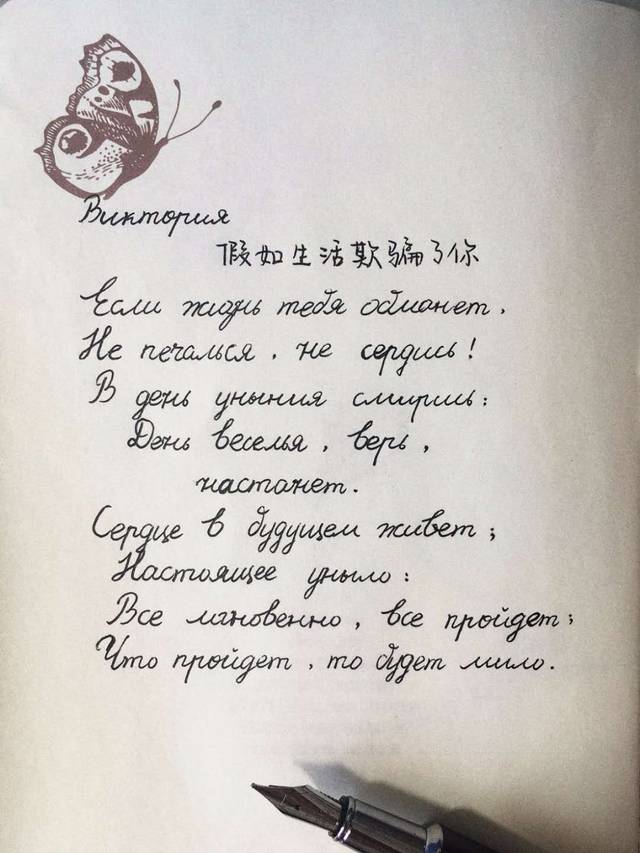 Виктория
假如生活欺骗了你
Если жизнь тебя обманет,
Не печалься, не сердись!
В день уныния смирись:
День веселья, верь,
настанет.
Сердце в будущем живет;
Настоящее уныло:
Все мгновенно, все пройдет;
Что пройдет, то будет мило.